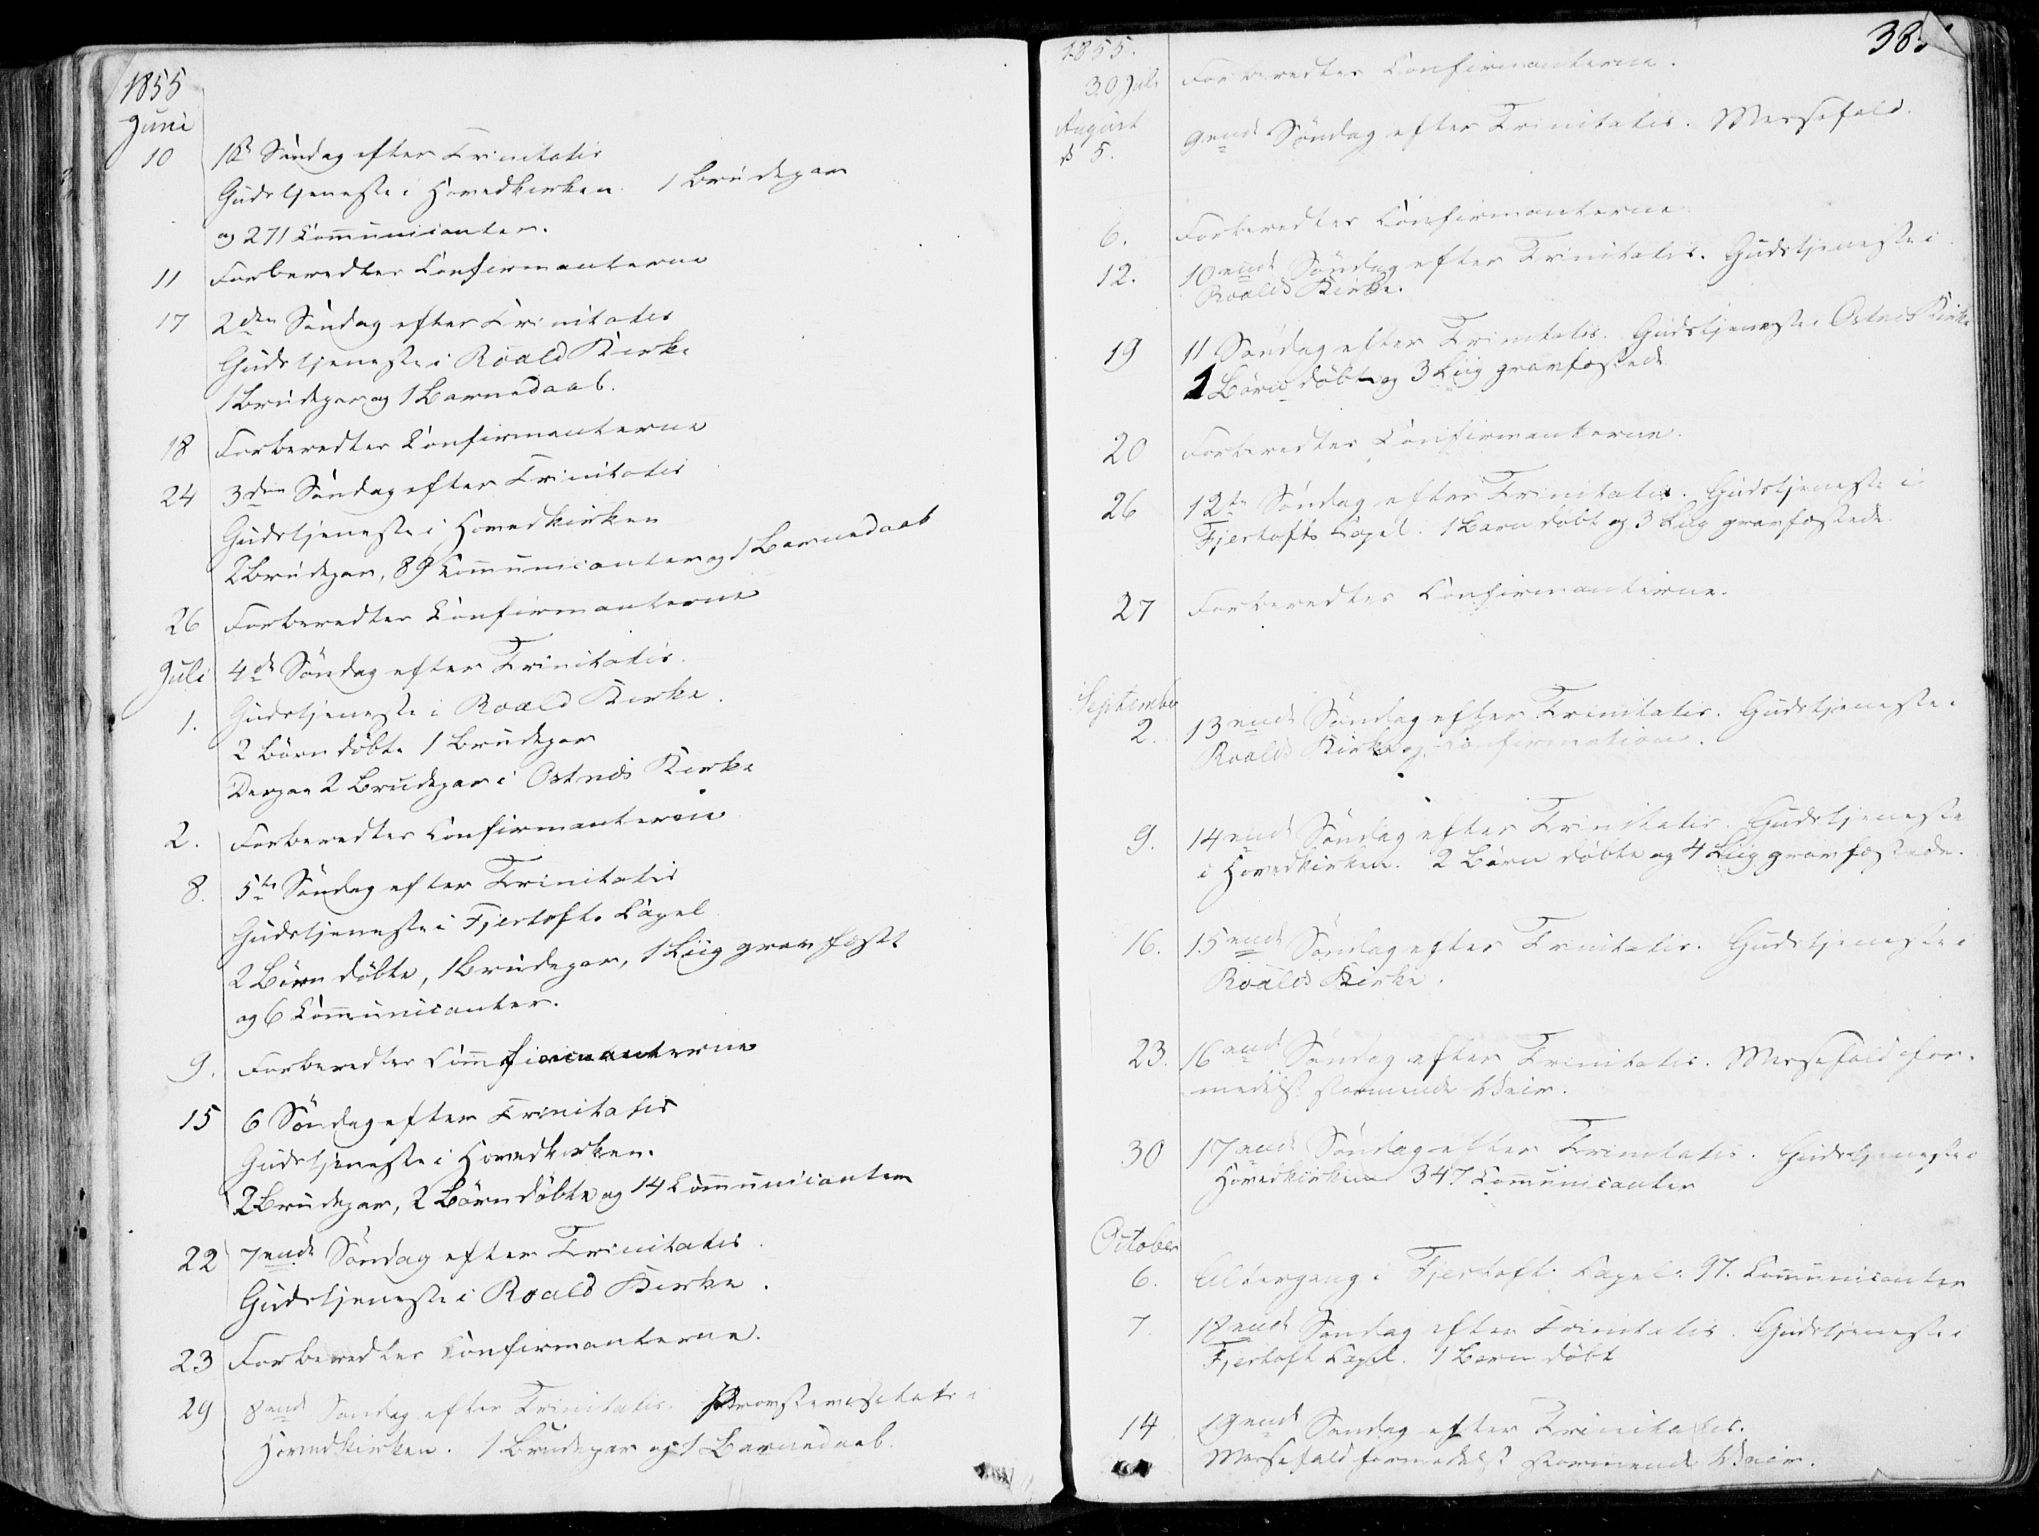 1855
Juni
10 1st Søndag efter Trinitatis
Gudstjeneste i Hovedkirken. 1 Brudepar
og 271 Com̄unicanter.
11 Forberedtes Confirmanterne
17 2den Søndag efter Trinitatis
Gudstjeneste i Roald Kirke
1 Brudepar og 1 Barnedaab.
18 Forberedtes Confirmanterne
24 3die Søndag efter Trinitatis
Gudstjeneste i Hovedkirken
2 Brudepar, 89 Com̄unicanter og 1 Barnedaab
26 Forberedtes Confirmanterne
Juli 4de Søndag efter Trinitatis.
1. Gudstjeneste i Roald Kirke.
2 Børn døbte 1 Brudepar
2 Brudepar i Ostnæs Kirke
2. Forberedtes Confirmanterne
8. 5te Søndag efter Trinitatis
Gudstjeneste i Fjertofts Capel
2 Børn døbte, 1 Brudepar, 1 Liig gravfæstet
og 6 Com̄unicanter.
9. Forberedtes Confirmanterne
15 6 Søndag efter Trinitatis
Gudstjeneste i Hovedkirken.
2 Brudepar, 2 Børn døbte og 14 Com̄unicanter
22 7ende Søndag efter Trinitatis.
Gudstjeneste i Roald Kirke.
23 Forberedtes Confirmanterne.
29 8ende Søndag efter Trinitatis. Provstevisitats i
Hovedkirken. 1 Brudepar og 1 Barnedaab.
1855. 385
30 Juli Forberedtes Confirmanterne.
August
d 5. 9ende Søndag efter Trinitatis. Messefald.
6. Forberedtes Confirmanterne
12. 10ende Søndag efter Trinitatis. Gudstjeneste i
Roalds Kirke.
19 11 Søndag efter Trinitatis. Gudstjeneste i Ostnæs Kirke
1 Børn døbt og 3 Liig gravfæstede
20 Forberedtes Confirmanterne.
26 12te Søndag efter Trinitatis. Gudstjeneste i
Fjertofts Capel. 1 Barn døbt og 3 Liig gravfæstede.
27 Forberedtes Confirmanterne.
September
2. 13ende Søndag efter Trinitatis. Gudstjeneste i
Roalds Kirke og Confirmation.
9. 14ende Søndag efter Trinitatis. Gudstjeneste
i Hovedkirken. 2 Børn døbte og 4 Liig gravfæstede.
16. 15ende Søndag efter Trinitatis. Gudstjeneste i
Roalds Kirke.
23. 16ende Søndag efter Trinitatis. Messefald for-
medelst stormende Veir.
30 17ende Søndag efter Trinitatis. Gudstjeneste i
Hovedkirken 347 Com̄unicanter
October
6. Altergang i Fjertoft Capel. 97. Com̄unicanter
7. 18ende Søndag efter Trinitatis. Gudstjeneste i
Fjertoft Capel. 1 Barn døbt
14 19ende Søndag efter Trinitatis.
Messefald formedelst stormende Veir.